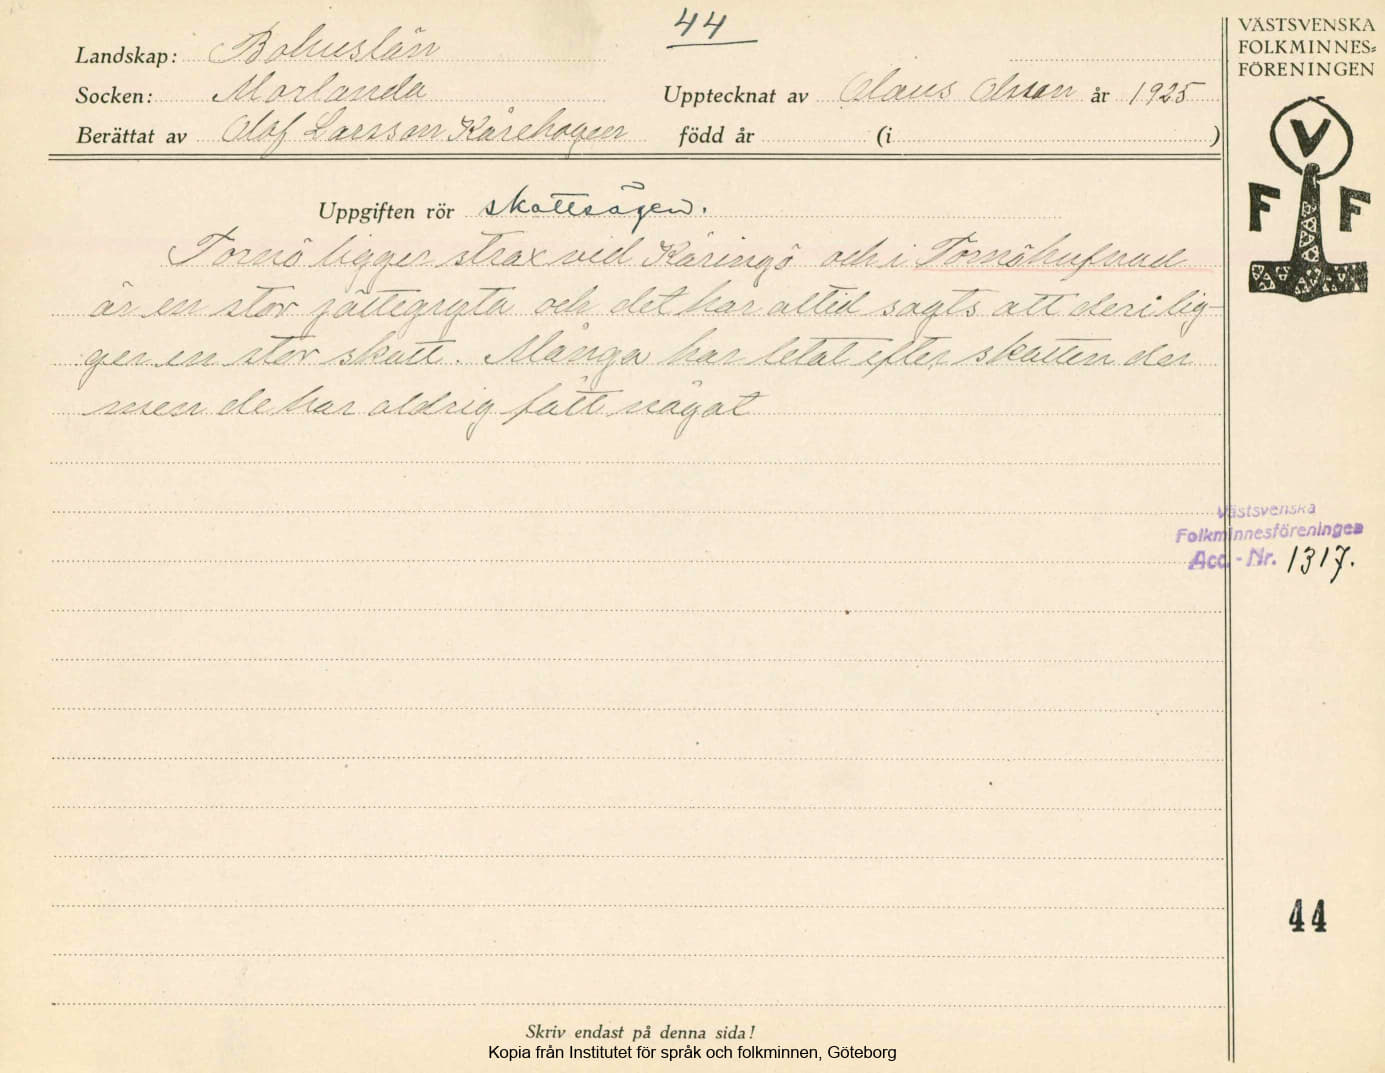 44
Landskap: Bohuslän
Socken: Morlanda
Upptecknat av Olaus Olsson år 1925
Berättat av Olof Larsson Kårehogen född år (i )
Uppgiften rör skattsägen.
Tornö ligger strax vid Käringö och i Tornöhufvud
är en stor jättegryta och det har altid sagts att deri lig-
ger en stor skatt. Många har letat efter skatten der
men de har aldrig fått något
VÄSTSVENSKA
FOLKMINNES=
FÖRENINGEN
V
F F
Västsvenska
Folkminnesföreningen
Acc.-Nr. 1317.
44
Skriv endast på denna sida!
Kopia från Institutet för språk och folkminnen, Göteborg